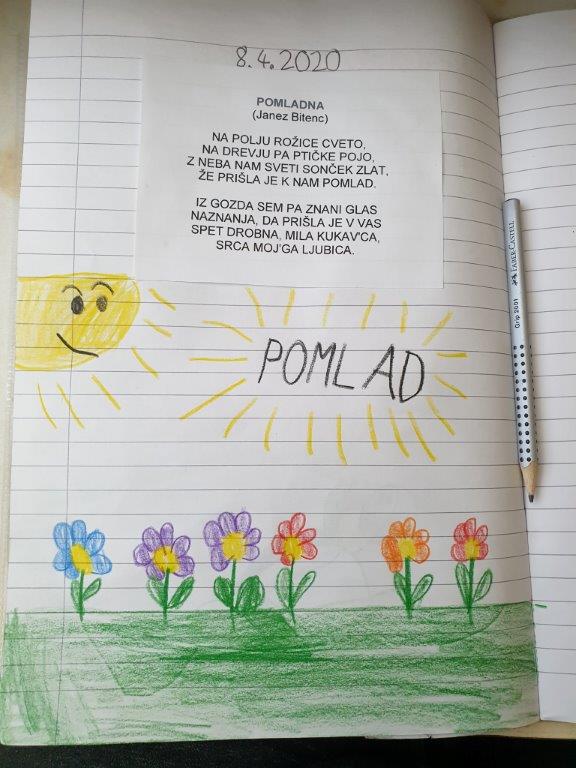 8.4.2020
POMLADNA
(Janez Bitenc)
NA POLJU ROŽICE CVETO,
NA DREVJU PA PTIČKE POJO,
Z NEBA NAM SVETI SONČEK ZLAT,
ŽE PRIŠLA JE K NAM POMLAD.
IZ GOZDA SEM PA ZNANI GLAS
NAZNANJA, DA PRIŠLA JE V VAS
SPET DROBNA, MILA KUKAV'CA,
SRCA MOJ'GA LJUBICA.
POMLAD
FABER-CASTELL
Grip 2001